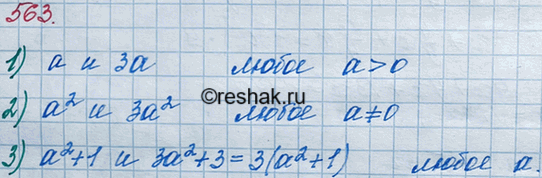 563.
1) a и 3a любое a>0
2) a² и 3a² любое a≠0
©reshak.ru
3) a²+1 и 3a²+3=3(a²+1) любое a.